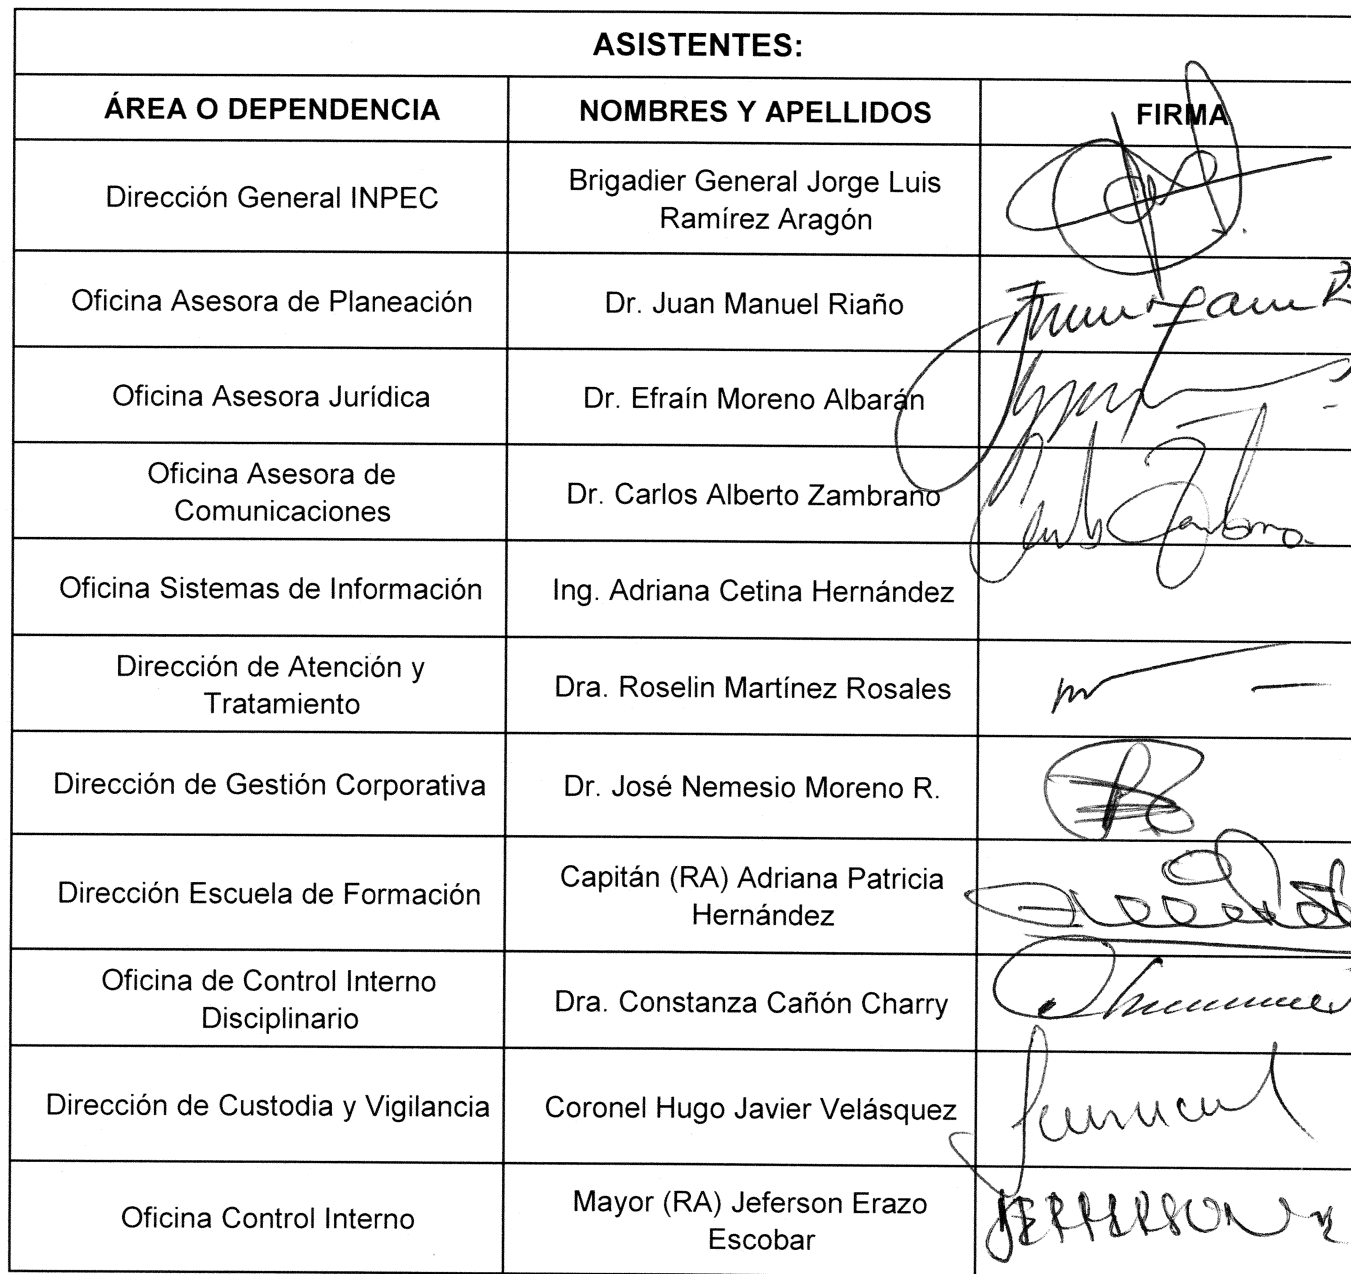 ASISTENTES:
ÁREA O DEPENDENCIA
NOMBRES Y APELLIDOS
FIRMA
Dirección General INPEC
Brigadier General Jorge Luis
Ramírez Aragón
Oficina Asesora de Planeación
Dr. Juan Manuel Riaño
Oficina Asesora Jurídica
Dr. Efraín Moreno Albarán
Oficina Asesora de
Comunicaciones
Dr. Carlos Alberto Zambrano
Oficina Sistemas de Información
Ing. Adriana Cetina Hernández
Dirección de Atención y
Tratamiento
Dra. Roselin Martínez Rosales
Dirección de Gestión Corporativa
Dr. José Nemesio Moreno R.
Dirección Escuela de Formación
Capitán (RA) Adriana Patricia
Hernández
Oficina de Control Interno
Disciplinario
Dra. Constanza Cañón Charry
Dirección de Custodia y Vigilancia
Coronel Hugo Javier Velásquez
Oficina Control Interno
Mayor (RA) Jeferson Erazo
Escobar